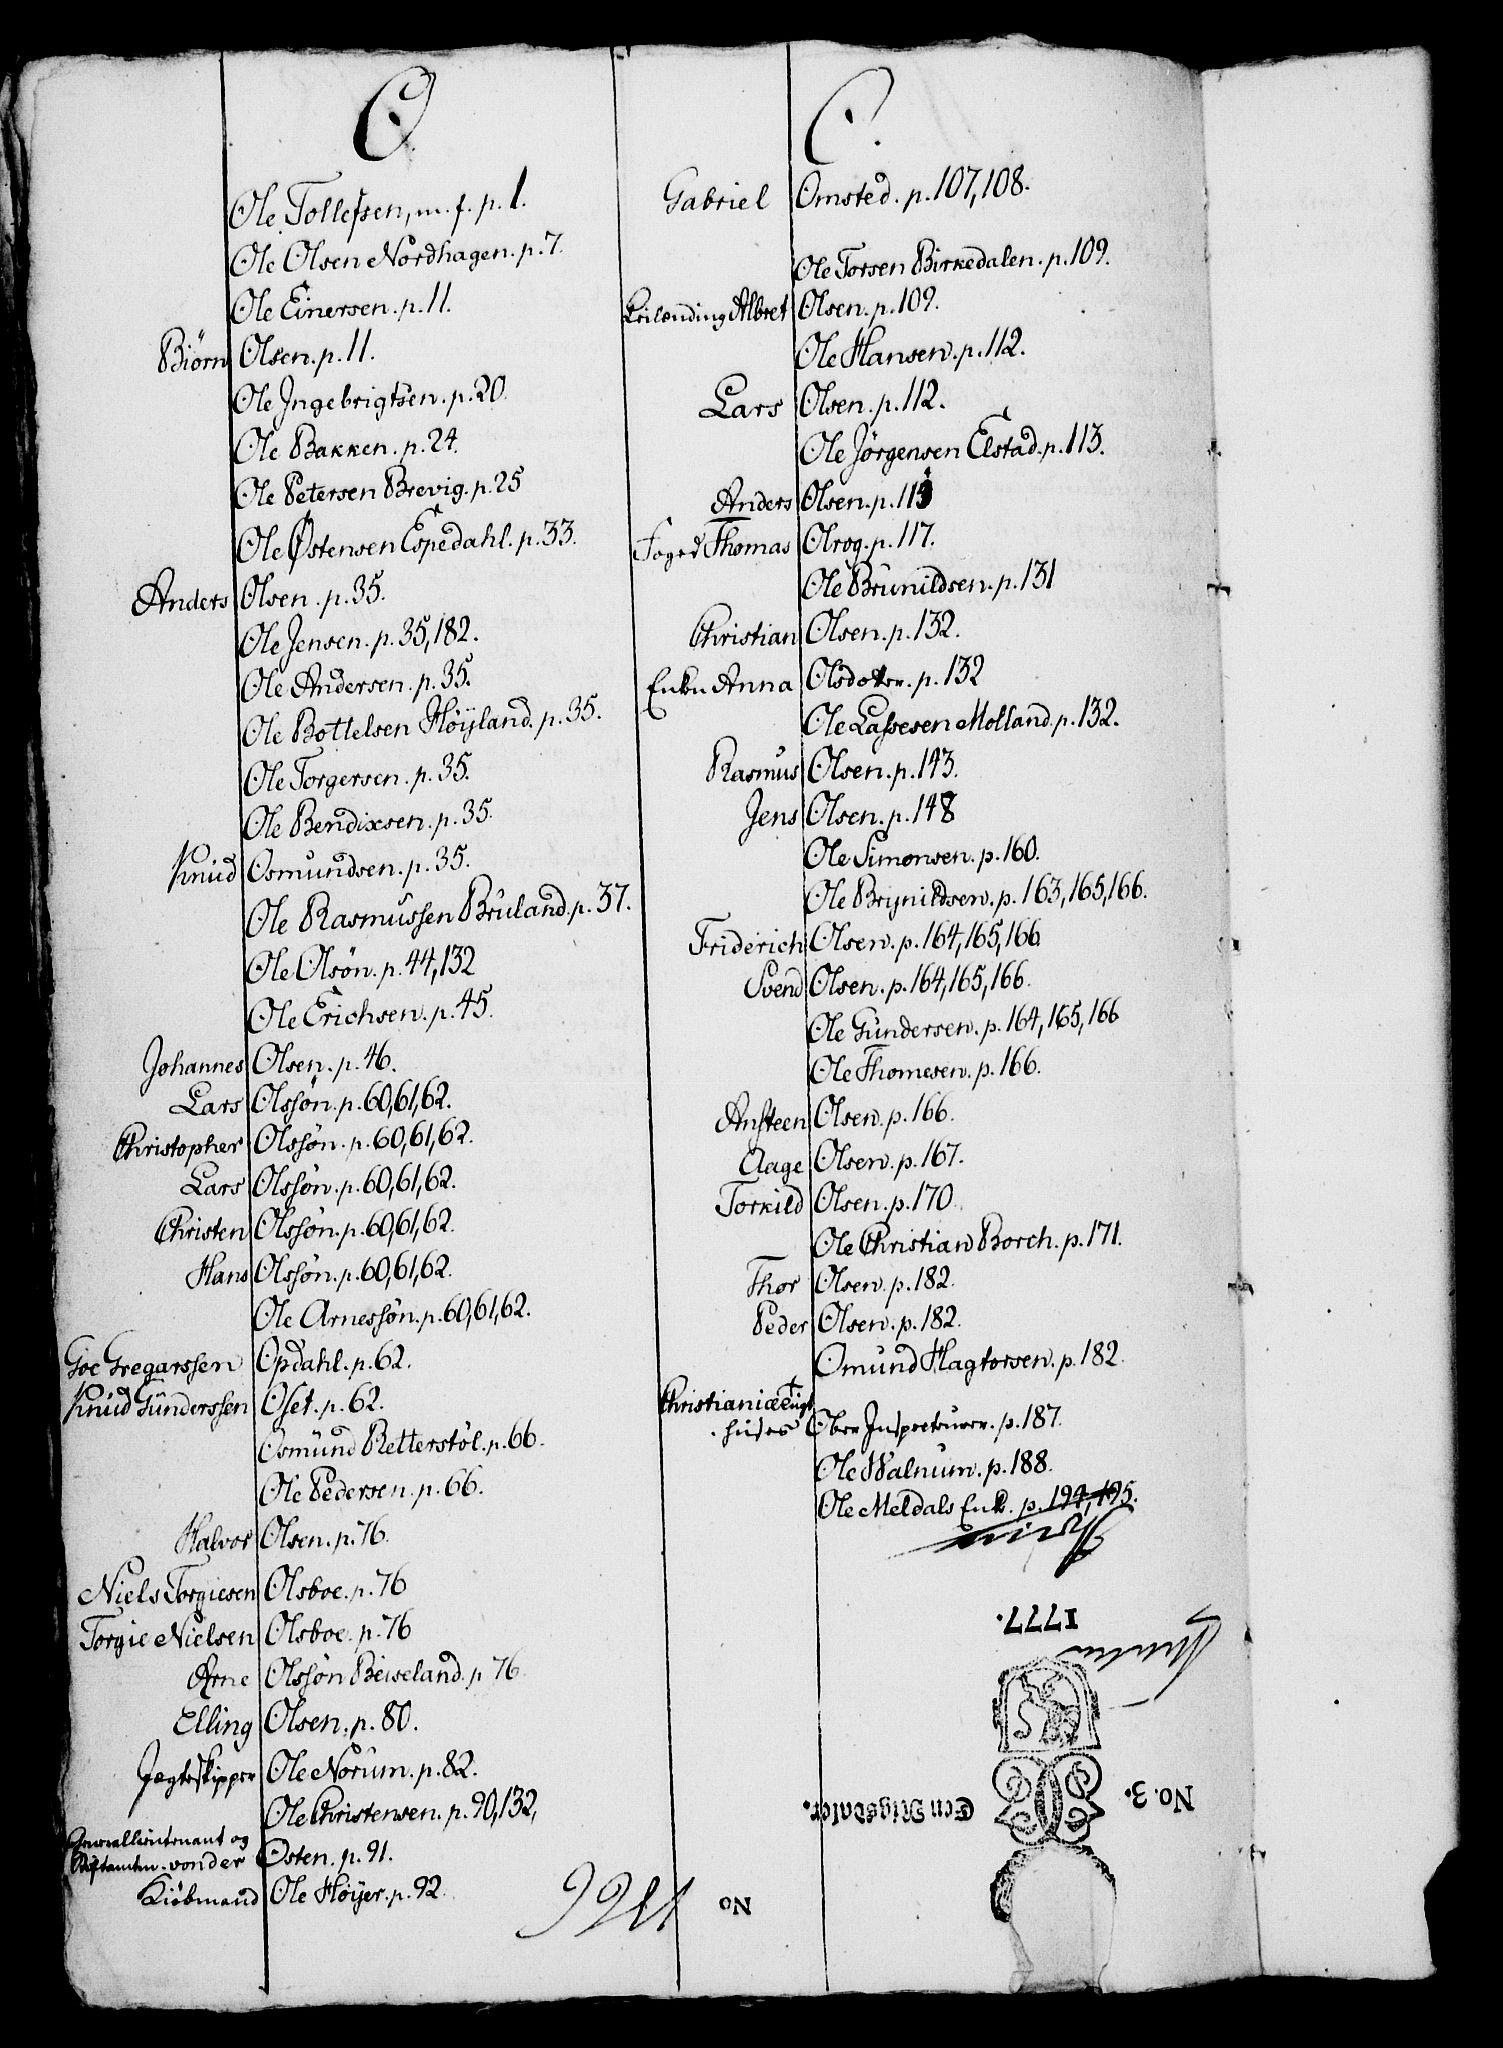 O.
Ole Tollefsen, m. f. p. 1.
Ole Olsen Nordhagen. p. 7.
Ole Einersen. p. 11.
Biörn Olsen. p. 11.
Ole Ingebrigtsen. p. 20.
Ole Bakken. p. 24.
Ole Petersen Brevig. p. 25
Ole Østensen Espedahl. p. 33.
Anders Olsen. p. 35.
Ole Jensen. p. 35, 182.
Ole Andersen. p. 35.
Ole Bottelsen Höÿland. p. 35.
Ole Torgersen. p. 35.
Ole Bendixsen. p. 35.
Knud Osmundsen. p. 35.
Ole Rasmussen Brüland. p. 37.
Ole Olsön. p. 44, 132
Ole Erichsen. p. 45.
Johannes Olsen. p. 46.
Lars Olssön. p. 60, 61, 62.
Christopher Olssön. p. 60, 61, 62.
Lars Olssön. p. 60, 61, 62.
Christen Olssön. p. 60, 61, 62.
Hans Olssön. p. 60, 61, 62.
Ole Arnessön. p. 60, 61, 62.
Goe Gregarssen Opdahl. p. 62.
Knud Günderssen Oset. p. 62.
Osmünd Retterstöl. p. 66.
Ole Pedersen. p. 66.
Halvor Olsen. p. 76.
Niels Torgiesen Olsboe. p. 76
Torgie Nielsen Olsboe. p. 76
Arne Olssön Beiseland. p 76.
Elling Olsen. p. 80.
Jægteskipper Ole Norum. p. 82.
Ole Christensen. p. 90, 132,
Generallieutenant og
Stiftamtm. von der Osten. p. 91.
Kiöbmand Ole Höÿer. p. 92.
O.
Gabriel Omsted. p. 107, 108.
Ole Torsen Birkedalen. p. 109.
Albret Olsen. p. 109.
Ole Hansen. p. 112.
Lars Olsen. p. 112.
Ole Jörgensen Elstad. p. 113.
Anders Olsen. p. 115
Foged Thomas Olrog. p. 117.
Ole Brünildsen. p. 131
Christian Olsen. p. 132.
Enke Anna Olsdotter. p. 132
Ole Lassesen Molland. p. 132.
Rasmus Olsen. p. 143.
Jens Olsen. p. 148
Ole Simonsen. p. 160.
Ole Brynildsen. p. 163, 165, 166.
Friderich Olsen. p. 164, 165, 166
Svend Olsen. p. 164, 165, 166.
Ole Gündersen. p. 164, 165, 166
Ole Thomesen. p. 166.
Ansteen Olsen. p. 166.
Aage Olsen. p. 167.
Torkild Olsen. p. 170.
Ole Christian Borch. p. 171.
Thor Olsen. p. 182.
Peder Olsen. p. 182.
Omund Hagtorsen. p. 182.
Christianiæ Tugt
huses Ober Inspecteuren. p. 187.
Ole Walnum. p. 188.
Ole Meldals Enke. p. 194, 195.
1777.
No. 3.
Een Rigsdaler.
No